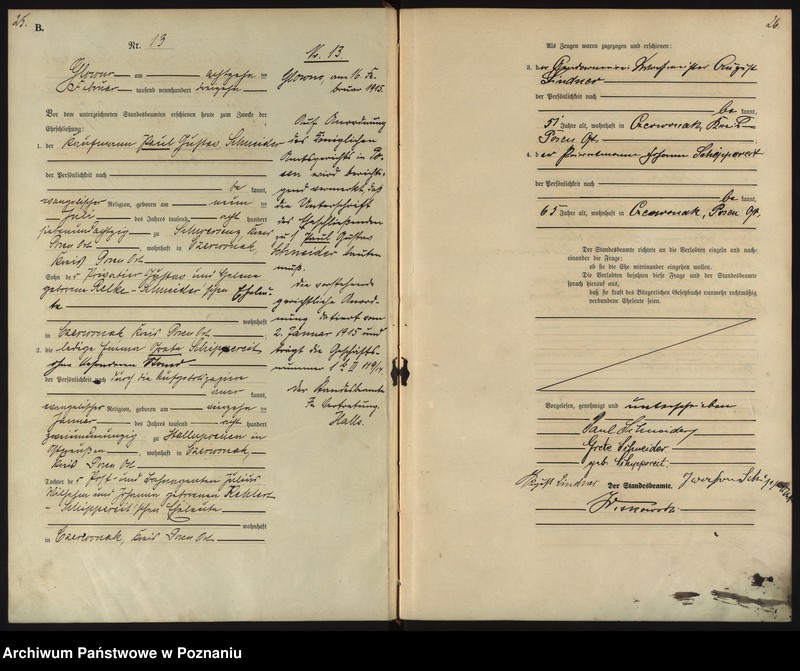 25.
B.
Nr. 13
Glowno am achtzehn ten
Februar tausend neunhundert dreizehn
Vor dem unterzeichneten Standesbeamten erschienen heute zum Zwecke der
Eheschließung:
1. der Kaufmann Paul Gustav Schneider
der Persönlichkeit nach
be kannt,
evangelischer Religion, geboren am neun ten
Juli des Jahres tausend acht hundert
siebenundachtzig zu Schwersenz Kreis
Posen Ost, wohnhaft in Czerwonak,
Kreis Posen Ost
Sohn des Privatier Gustav und Helene
geborene Schneider'schen Eheleu-
te
wohnhaft
in Czerwonak Kreis Posen Ost
2. die ledige Emma Grete Schippereit
ohne besonderen Stand
der Persönlichkeit nach durch die Aufgebotspapiere
aner kannt,
evangelischer Religion, geboren am ten
Januar des Jahres tausend acht hundert
zweiundneunzig zu in
Ostpreußen, wohnhaft in Czerwonak,
Kreis Posen Ost
Tochter des Post- und Julius
Wilhelm und Johanna geborenen
Schippereit'schen Eheleute
wohnhaft
in Czerwonak, Kreis Posen Ost.
Nr. 13.
Glowno, am 16. Fe-
bruar 1915.
Auf Anordnung
des Königlichen
Amtsgerichts in Po-
sen wird berichti-
gend vermerkt, daß
die Unterschrift
des Eheschließenden
auf Paul Gustav
Schneider lauten
muß.
Die vorstehende
gerichtliche Anord-
nung datiert vom
2. Januar 1915 und
trägt die Geschäfts-
nummer
Der Standesbeamte
In Vertretung.
26.
Als Zeugen waren zugezogen und erschienen:
3. der Gendarmerie-Wachtmeister August
Lindner
der Persönlichkeit nach
be kannt,
51 Jahre alt, wohnhaft in Czerwonak, Kreis
Posen Ost.
4. der Johann Schippereit
der Persönlichkeit nach
be kannt,
65 Jahre alt, wohnhaft in Czerwonak, Posen Ost.
Der Standesbeamte richtete an die Verlobten einzeln und nach-
einander die Frage:
ob sie die Ehe miteinander eingehen wollen.
Die Verlobten bejahten diese Frage und der Standesbeamte
sprach hierauf aus,
daß sie kraft des Bürgerlichen Gesetzbuchs nunmehr rechtmäßig
verbundene Eheleute seien.
Vorgelesen, genehmigt und unterschrieben
Paul Schneider
Grete Schneider
geb. Schippereit.
August Lindner Johann Schippereit
Der Standesbeamte.
Archiwum Państwowe w Poznaniu